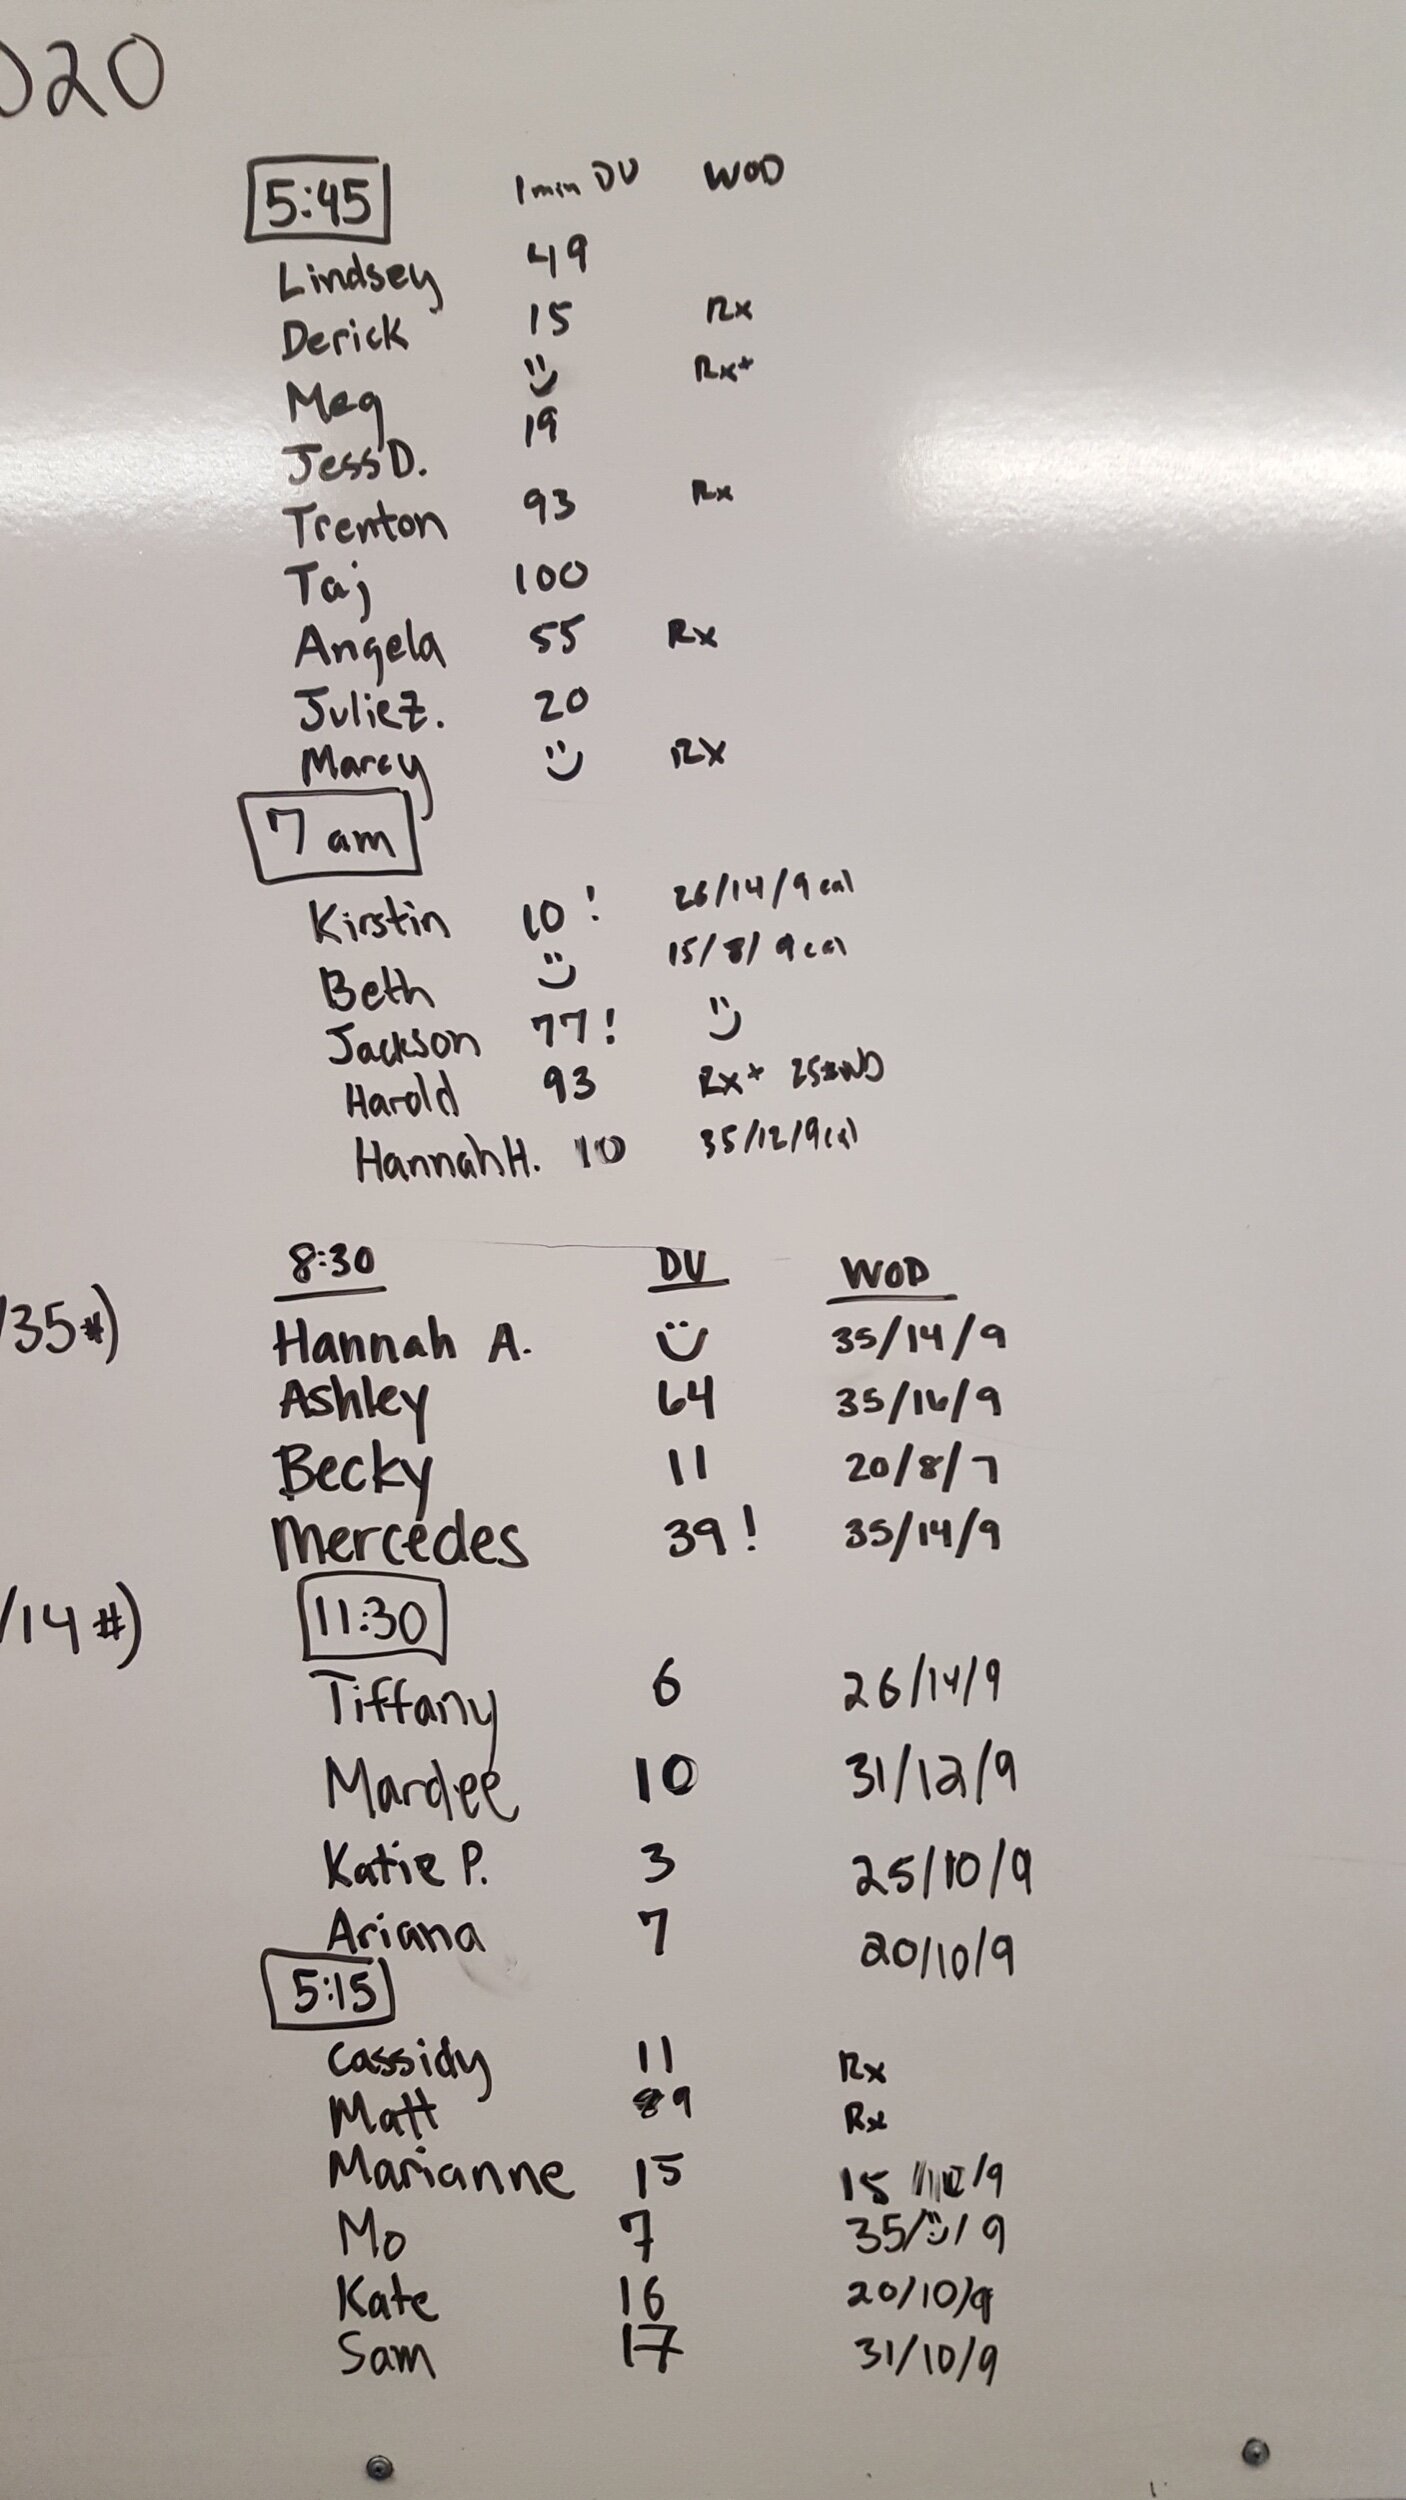 020
5:45 1 min DU WOD
Lindsey 49
Derick 15 Rx
Meg :) Rx+
Jess D. 19
Trenton 93 Rx
Taj 100
Angela 55 Rx
Julie Z. 20
Marcy :) RX
7 am
Kirstin 10! 26/14/9 cal
Beth :) 15/8/9 cal
Jackson 77! :)
Harold 93 Rx+ 25#
Hannah H. 10 35/12/9 cal
8:30 DU WOD
/35#)
Hannah A. :) 35/14/9
Ashley 64 35/16/9
Becky 11 20/8/7
Mercedes 39! 35/14/9
/14#)
11:30
Tiffany 6 26/14/9
Mardee 10 31/12/9
Katie P. 3 25/10/9
Ariana 7 20/10/9
5:15
Cassidy 11 Rx
Matt 89 Rx
Marianne 15 15 /9
Mo 7 35/:)/9
Kate 16 20/10/9
Sam 17 31/10/9